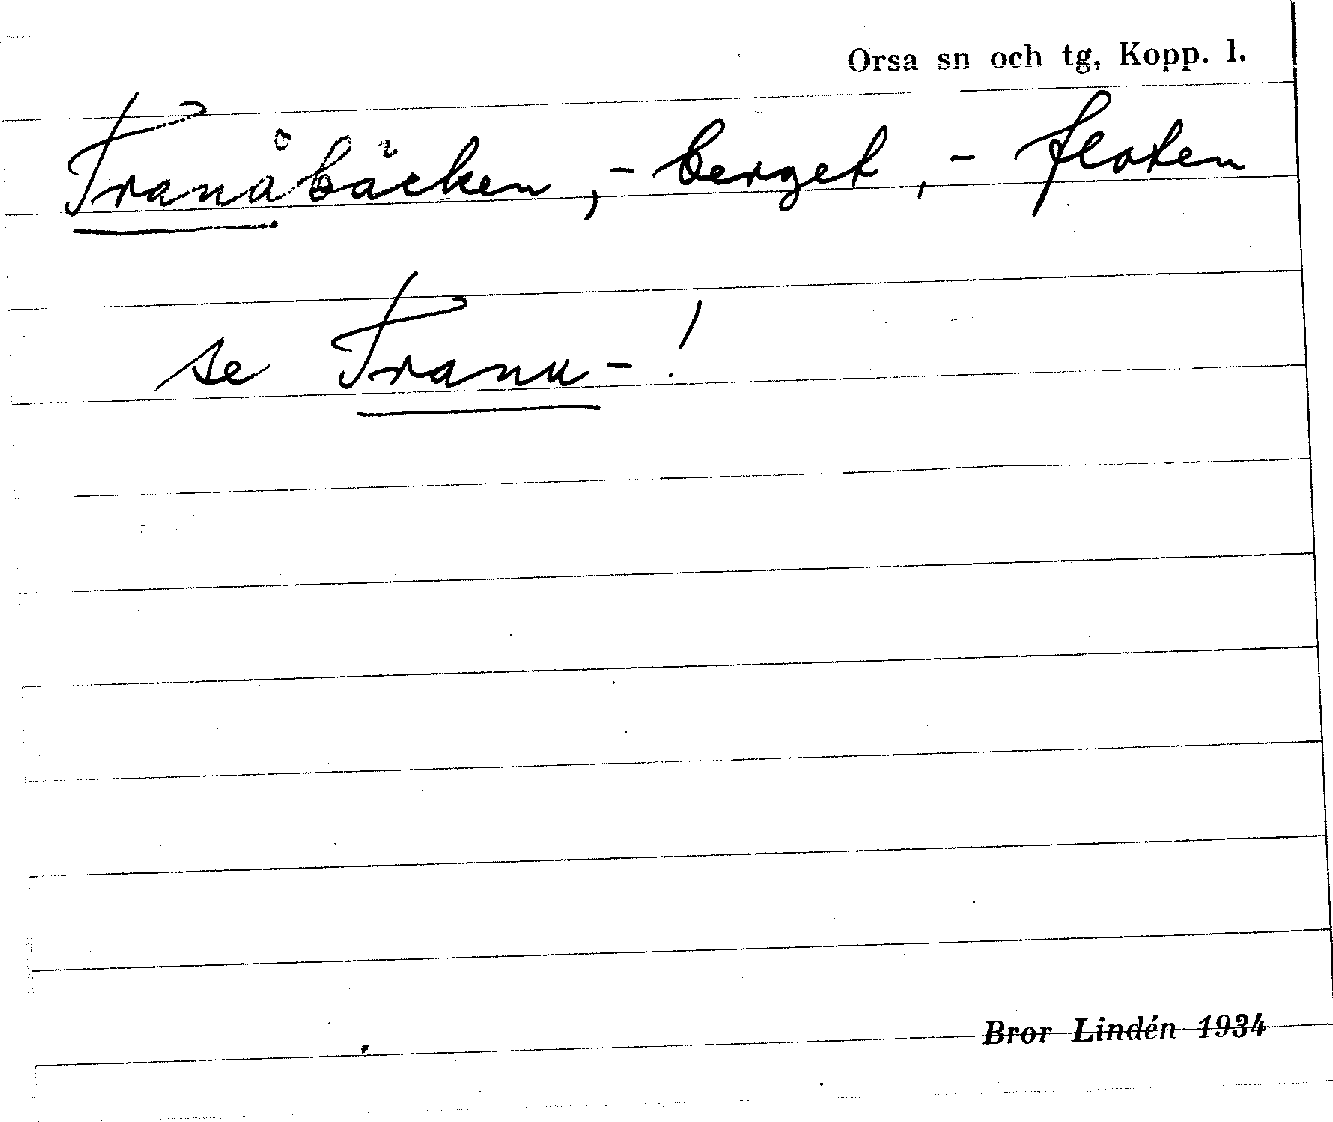 Orsa sn och tg, Kopp. l.
Tranåbäcken, -berget, -floten
se Tranu-!
Bror Lindén 1934